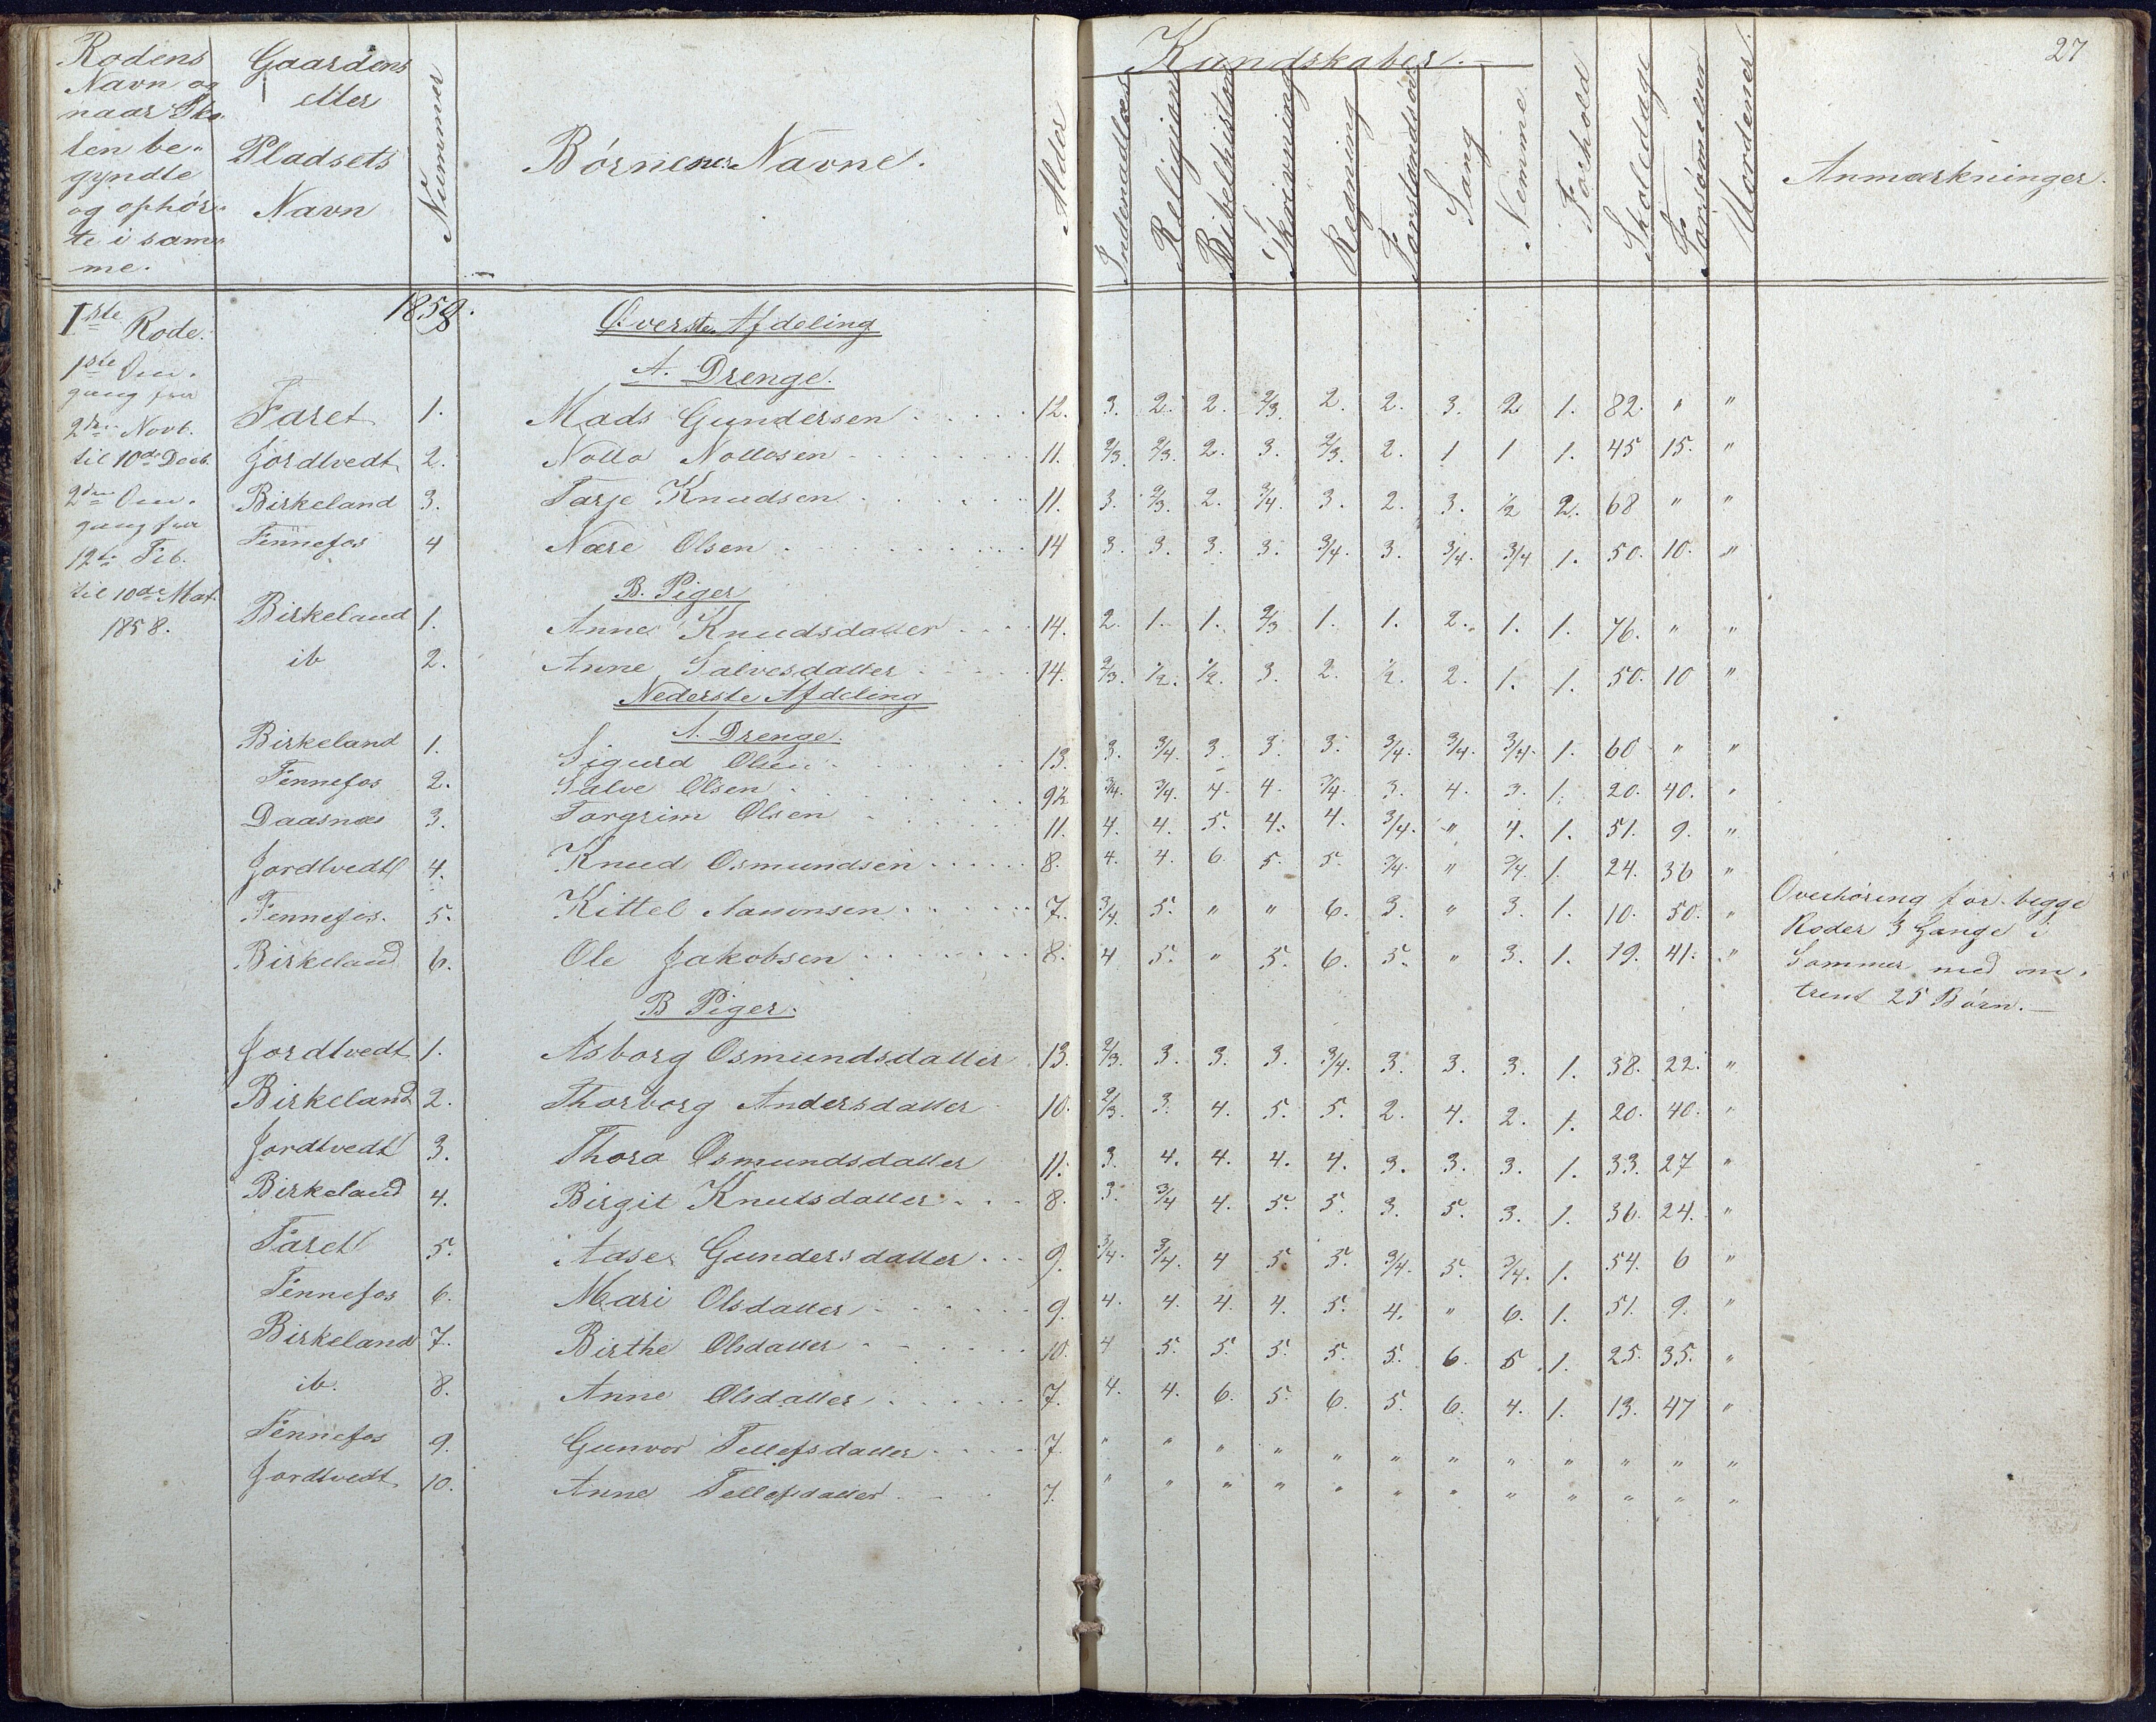 27
Rodens
Navn og
naar Sko-
len be-
gyndte
og ophør-
te i sam-
me.
Gaardens
eller
Pladsets
Navn
Nummer
Børnenes Navne.
Alder
Kundskaber.
Indenadlæs
Religion
Bibelhistor
Skrivning
Regning
Forstandsøv
Sang
Nemme
Forhold
Skoledage
Forsømelser
Anmærkninger.
1859.
1ste Rode.
1ste Om-
gang fra
2den Novb.
til 10de Decb.
2den Om-
gang fra
12te Feb.
til 10de Mat.
1858.
Øverste Afdeling
A. Drenge.
Faret 1. Mads Gundersen 12. 3. 2. 2. 2/3. 2. 2. 3. 2 1. 82. " "
Jordtvedt 2. Nollo Nollosen 11. 2/3. 2/3. 2. 3. 2/3. 2. 1 1 1. 45 15. "
Birkeland 3. Tarje Knudsen 11. 3. 2/3. 2. 3/4. 3. 2. 3. 1/2 2. 68 " "
Fennefos 4 Nære Olsen 14 3. 3. 3. 3. 3/4. 3. 3/4. 3/4 1. 50. 10. "
B. Piger
Birkeland 1. Anne Knudsdatter 14. 2. 1. 1. 2/3 1. 1. 2. 1. 1. 76. " "
ib 2. Anne Salvesdatter 14. 2/3. 1/2. 1/2. 3. 2. 1/2. 2. 1. 1. 50. 10 "
Nederste Afdeling
A. Drenge.
Birkeland 1. Sigurd Olsen 13. 3. 3/4. 3. 3. 3. 3/4. 3/4. 3/4. 1. 60 " "
Fennefos 2. Salve Olsen 9½ 3/4. 3/4. 4. 4. 3/4. 3. 4. 3. 1. 20. 40. "
Daasnæs 3. Torgrim Olsen 11. 4. 4. 5. 4. 4. 3/4. " 4. 1. 51. 9. "
Jordtvedt 4. Knud Osmundsen 8. 4. 4. 6. 5. 5. 3/4. " 3/4. 1. 24. 36 "
Fennefos. 5. Kittel Aanonsen 7. 3/4. 5. " " 6. 3. " 3. 1. 10. 50. "
Birkeland 6. Ole Jakobsen 8. 4 5. " 5. 6. 5. " 3. 1. 19. 41. "
Overhøring for begge
Roder 3 Gange i
Sommer med om-
trent 25 Børn.
B Piger.
Jordtvedt 1. Asborg Osmundsdatter 13. 2/3. 3. 3. 3. 3/4. 3. 3. 3. 1. 38. 22. "
Birkeland 2. Thorborg Andersdatter 10. 2/3. 3. 4. 5. 5. 2. 4. 2. 1. 20. 40. "
Jordtvedt 3. Thora Osmundsdatter 11. 3. 4. 4. 4. 4. 3. 3. 3. 1. 33. 27 "
Birkeland 4. Birgit Knutsdatter 8. 3. 3/4 4. 5. 5. 3. 5. 3. 1. 36. 24. "
Faret 5. Aase Gundersdatter 9. 3/4. 3/4. 4 5. 5. 3/4. 5. 3/4. 1. 54. 6 "
Fennefos 6. Mari Olsdatter 9. 4. 4. 4. 4. 5. 4. " 6. 1. 51. 9. "
Birkeland 7. Birthe Olsdatter 10. 4 5. 5. 5. 5. 5. 6. 5 1. 25. 35. "
ib. 8. Anne Olsdatter 7. 4. 4. 6. 5. 6. 5. 6. 4. 1. 13. 47 "
Fennefos 9. Gunvor Tellefsdatter 7. " " " " " " " " " " " "
Jordtvedt 10. Anne Tellefsdatter 7. " " " " " " " " " " " "